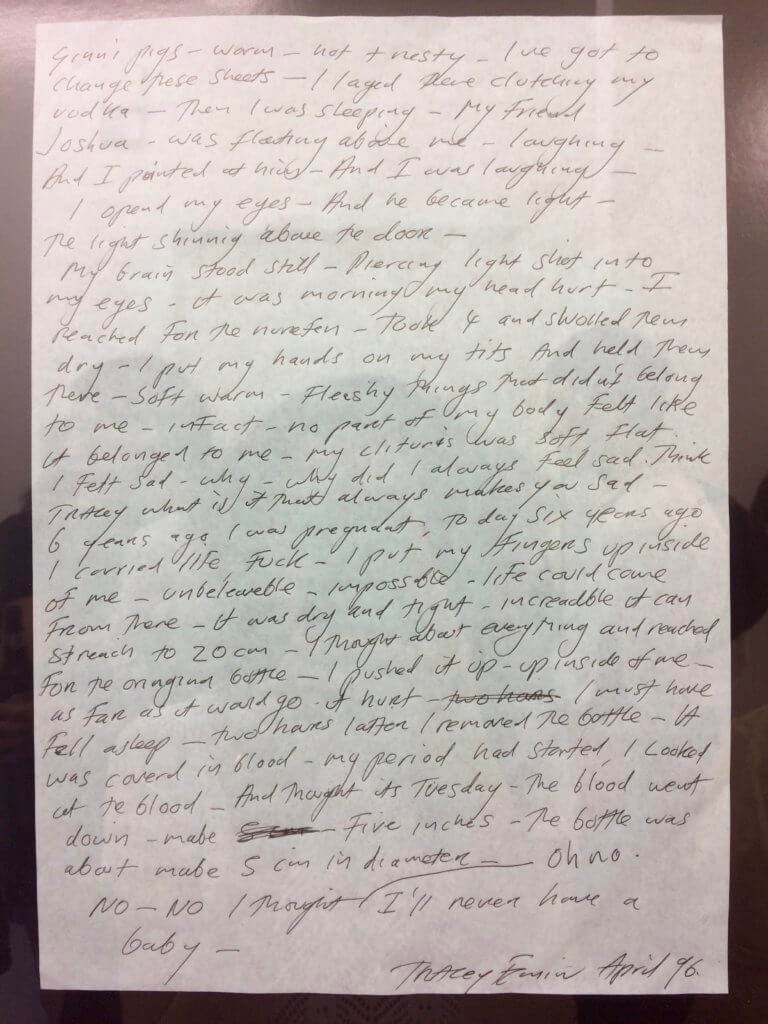 Ginni pigs - worm - hot + nesty - I ve got to
change these sheets - I layed there clutching my
vodka - Then I was sleeping - My Friend
Joshua - was floating above me - laughing -
And I pointed at him - And I was laughing -
I opend my eyes - And he became light -
The light shinnig above the door -
My brain stood still - Piercing light shot into
my eyes - it was morning my head hurt - I
reached For the nurefen - Took 4 and swolled them
dry - I put my hands on my tits And held them
there - Soft warm - Fleashy things that didn't belong
to me - inFact - no part of my body Felt like
it belonged to me - my clituris was soft flat.
I Felt Sad - why - why did I always Feel sad. Think
TRAcey what is it that always makes you sad -
6 years ago I was pregnant, To day six years ago
I carried life, Fuck - I put my Fingers up inside
of me - unbeleveble - impossable - life could come
From there - it was dry and tight - increadble it can
streach to 20 cm - I thought about everything and reached
For the oringina bottle - I pushed it up - up inside of me -
as Far as it would go - it hurt - two hours I must have
Fell asleep - two hours latter I removed the bottle - It
was coverd in blood - my period had started, I Looked
at the blood - And thought its Tuesday - The blood went
down - mabe 5 cm Five inches - The bottle was
about mabe 5 cm in diameter - Oh no.
NO - NO I thought I'll never have a
baby -
TRAcey Emin April 96.